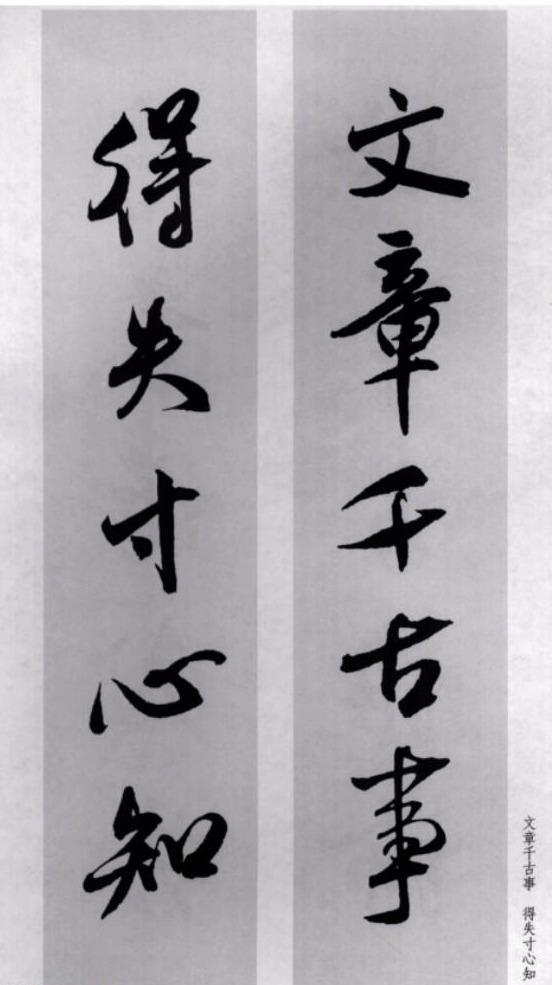 文章千古事
得失寸心知
文章千古事 得失寸心知